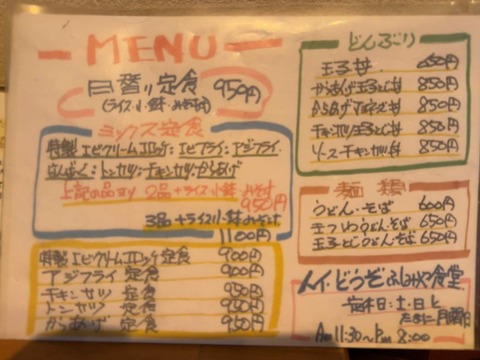 MENU
日替り定食 950円
(ライス・小鉢・みそ汁)
ミックス定食
特製エビクリームコロッケ・エビフライ・アジフライ・
はんばーぐ・トンカツ・チキンカツ・からあげ
上記の品より 2品+ライス・小鉢・みそ汁
950円
3品+ライス・小鉢・みそ汁
1100円
特製エビクリームコロッケ定食 900円
アジフライ定食 900円
チキンカツ定食 950円
トンカツ定食 950円
からあげ定食 950円
どんぶり
玉子丼 650円
からあげ玉子とじ丼 850円
からあげマヨネーズ丼 850円
チキンカツ玉子とじ丼 850円
ソースチキンカツ丼 850円
麺類
うどん・そば 600円
きつねうどん・そば 650円
玉子とじうどん・そば 650円
へイ・どうぞ 食堂
定休日:土・日と
たまに月曜日
Am 11:30~Pm 8:00